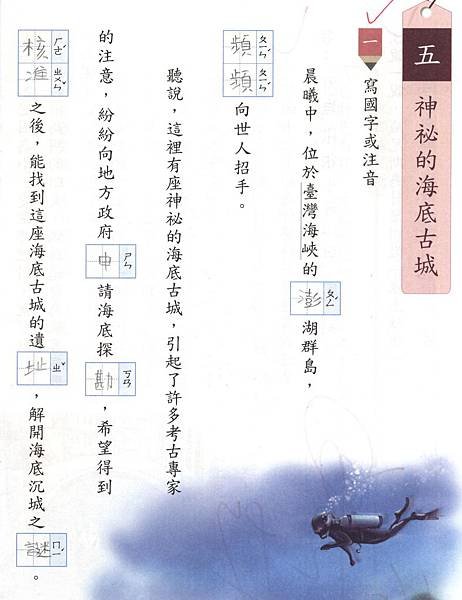 五 神祕的海底古城
一 寫國字或注音
晨曦中，位於臺灣海峽的澎ㄆㄥˊ湖群島，
頻ㄆㄧㄣˊ頻ㄆㄧㄣˊ向世人招手。
聽說，這裡有座神祕的海底古城，引起了許多考古專家
的注意，紛紛向地方政府申ㄕㄣ請海底探勘ㄎㄢ，希望得到
核ㄏㄜˊ准ㄓㄨㄣˇ之後，能找到這座海底古城的遺址ㄓˇ，解開海底沉城之謎ㄇㄧˊ。